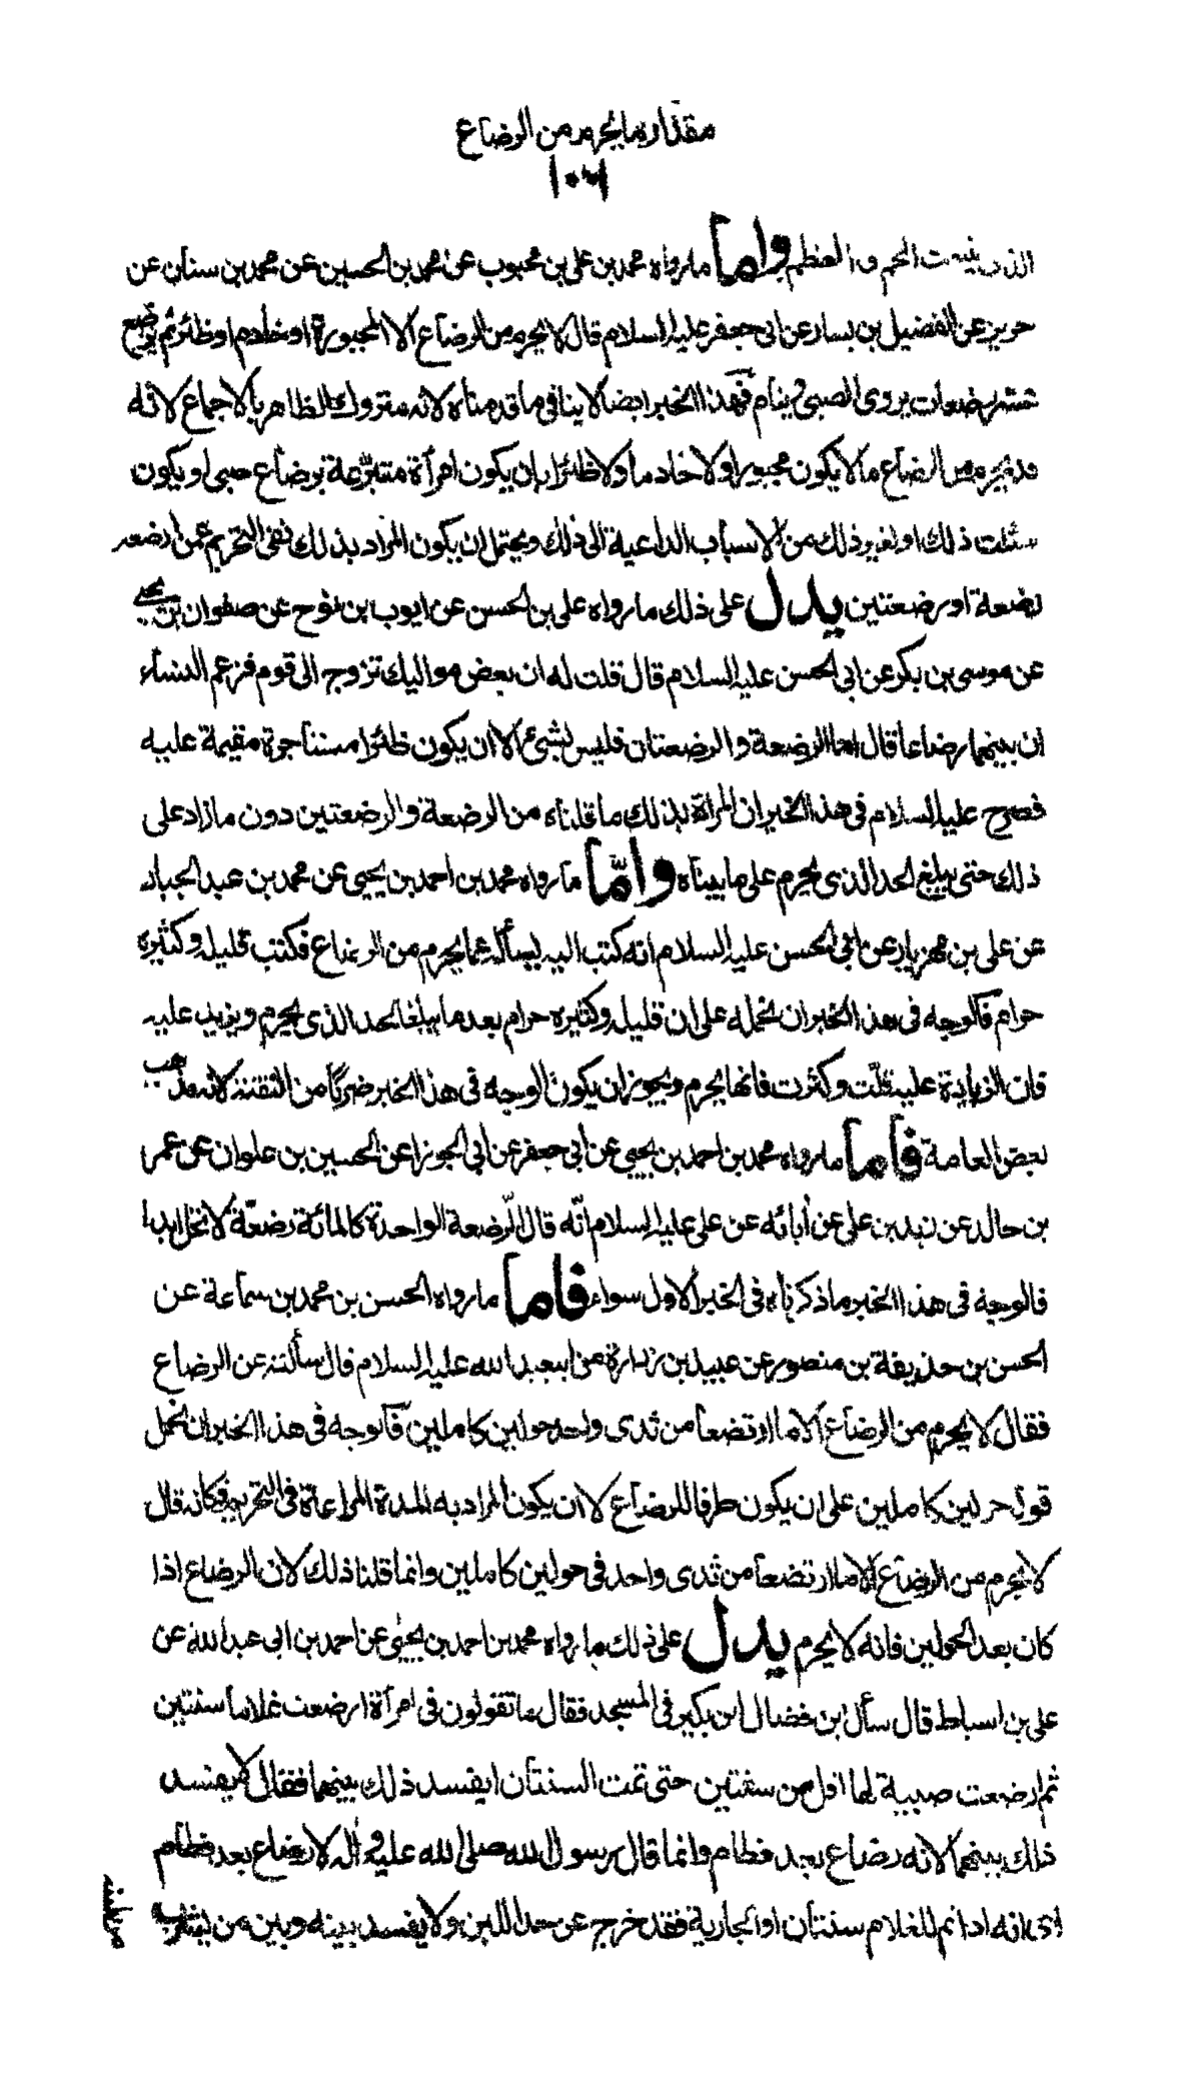 مقدار ما يحرم من الرضاع
١٠٦١
الذى ينبت اللحم والعظم واما ما رواه محمد بن على بن محبوب عن محمد بن الحسين عن محمد بن سنان عن
حريز عن الفضيل بن يسار عن ابى جعفر عليه السلام قال لا يحرم من الرضاع الا المجبورة او خادم او ظئر ثم يرضع
عشر رضعات يروى الصبى و ينام فهذا الخبر ايضا لا ينافى ما قدمناه لانه متروك الظاهر بالاجماع لانه
قد يحرم من الرضاع ما لا يكون مجبورا ولا خادما ولا ظئرا بان يكون امرأة متبرّعة برضاع صبى او يكون
سئلت ذلك او لغير ذلك من الاسباب الداعية الى ذلك ويحتمل ان يكون المراد بذلك نفى التحريم عمن ارضعه
رضعة او رضعتين يدل على ذلك ما رواه على بن الحسن عن ايوب بن نوح عن صفوان بن يحيى
عن موسى بن بكر عن ابى الحسن عليه السلام قال قلت له ان بعض مواليك تزوج الى قوم فزعم النساء
ان بينهما رضاعا قال اما الرضعة والرضعتان فليس بشئ الا ان يكون ظئرا مستأجرة مقيمة عليه
فصرح عليه السلام فى هذا الخبر ان المراة بذلك ما قلناه من الرضعة والرضعتين دون ما زاد على
ذلك حتى يبلغ الحد الذى يحرم على ما بيناه وامّا ما رواه محمد بن احمد بن يحيى عن محمد بن عبد الجبار
عن على بن مهزيار عن ابى الحسن عليه السلام انه كتب اليه يسأله عما يحرم من الرضاع فكتب قليله وكثيره
حرام فالوجه فى هذا الخبر ان نحمله على ان قليله وكثيره حرام بعد ما يبلغ الحد الذى يحرم ويزيد عليه
فان الزيادة عليه قلّت وكثرت فانها يحرم ويجوز ان يكون الوجه فى هذا الخبر ضربًا من التقية لانه مذهب
بعض العامة فاما ما رواه محمد بن احمد بن يحيى عن ابى جعفر عن ابى الجوزا عن الحسين بن علوان عن عمرو
بن خالد عن زيد بن على عن أبائه عن على عليه السلام انّه قال الرّضعة الواحدة كالمائة رضعّة لا تحل ابدا
فالوجه فى هذا الخبر ما ذكرناه فى الخبر الاول سواء فاما ما رواه الحسن بن محمد بن سماعة عن
الحسن بن حذيفة بن منصور عن عبيد بن زرارة عن ابيعبد الله عليه السلام قال سألته عن الرضاع
فقال لا يحرم من الرضاع الا ما ارتضعا من ثدى واحد حولين كاملين فالوجه فى هذا الخبر ان نحمل
قوله حولين كاملين على ان يكون طرفا للرضاع لا ان يكون المراد به المدة المراعاة فى التحريم فكانه قال
لا يحرم من الرضاع الا ما ارتضعا من ثدى واحد فى حولين كاملين وانما قلنا ذلك لان الرضاع اذا
كان بعد الحولين فانه لا يحرم يدل على ذلك ما رواه محمد بن احمد بن يحيى عن احمد بن ابى عبد الله عن
على بن اسباط قال سأل ابن فضال ابن بكير فى المسجد فقال ما تقولون فى امرأة ارضعت غلاما سنتين
ثم ارضعت صبية لها اقل من سنتين حتى تمت السنتان ايفسد ذلك بينهما فقال لا يفسد
ذلك بينهما لانه رضاع بعد فطام وانما قال رسول الله صلى الله عليه وآله لا رضاع بعد فطام
اى انه اذا تم للغلام سنتان او الجارية فقد خرج عن حد اللبن ولا يفسد بينه وبين من يشرب